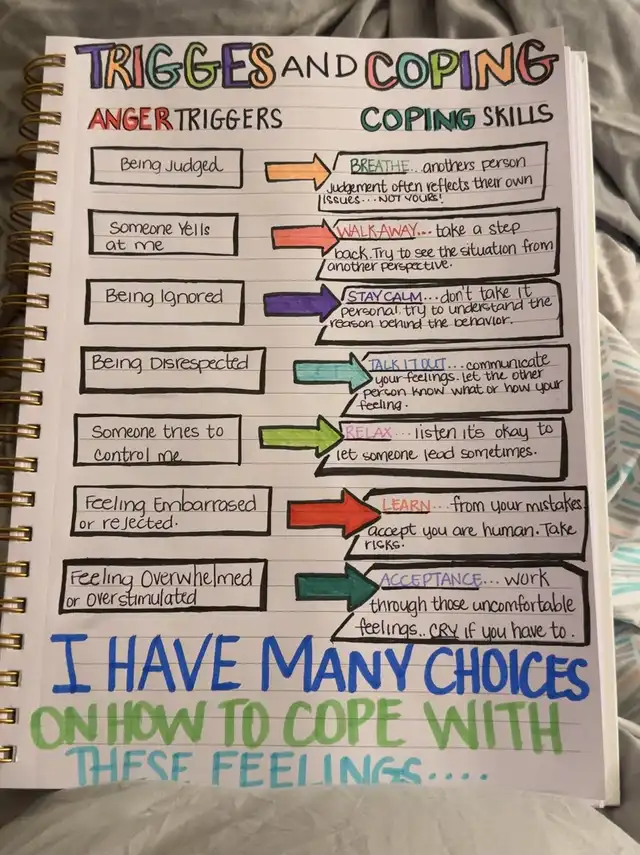 TRIGGES AND COPING
ANGER TRIGGERS
COPING SKILLS
Being Judged
BREATHE... anothers person
judgement often reflects their own
issues....NOT YOURS!
Someone Yells
at me
WALK AWAY... take a step
back. Try to see the situation from
another perspective.
Being Ignored
STAY CALM...don't take it
personal. try to understand the
reason behind the behavior.
Being Disrespected
TALK IT OUT... communicate
your feelings. let the other
person know what or how your
feeling.
Someone tries to
control me
RELAX... listen it's okay to
let someone lead sometimes.
Feeling Embarrased
or rejected.
LEARN...from your mistakes
accept you are human. Take
risks.
Feeling Overwhelmed
or Overstimulated
ACCEPTANCE... work
through those uncomfortable
feelings.. CRY if you have to.
I HAVE MANY CHOICES
ON HOW TO COPE WITH
THESE FEELINGS....